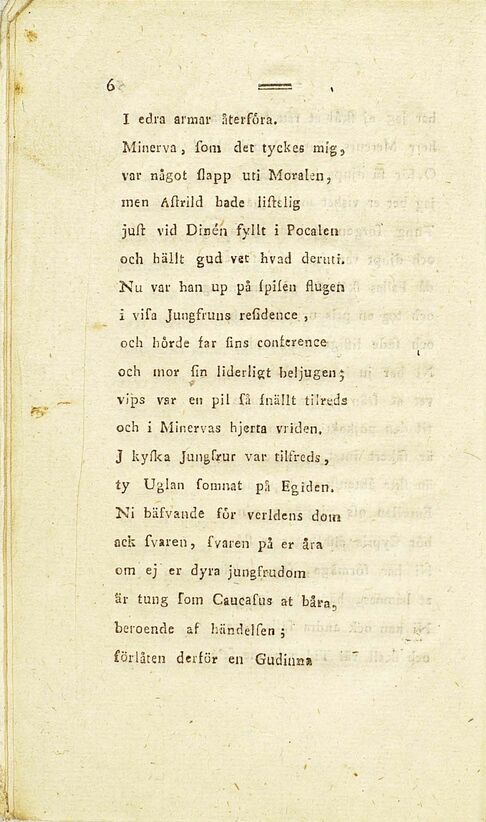 6
I edra armar återföra.
Minerva, ſom det tyckes mig,
var något ſlapp uti Moralen,
men Aſtrild hade liſtelig
juſt vid Dinén fyllt i Pocalen
och hällt gud vet hvad deruti.
Nu var han up på ſpiſén flugen
i viſa Jungfruns reſidence,
och hörde far ſins conference
och mor ſin liderligt beljugen;
vips var en pil ſå ſnällt tilreds
och i Minervas hjerta vriden.
J kyſka Jungfrur var tilfreds,
ty Uglan ſomnat på Egiden.
Ni bäfvande för verldens dom
ack ſvaren, ſvaren på er åra
om ej er dyra jungfrudom
är tung ſom Caucaſus at båra,
beroende af händelſen;
förlåten derför en Gudinna